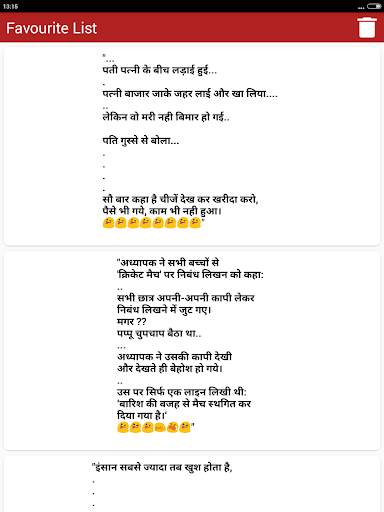 13:15
Favourite List
"...
पती पत्नी के बीच लड़ाई हुई...
.
पत्नी बाजार जाके जहर लाई और खा लिया....
..
लेकिन वो मरी नही बिमार हो गई..
पति गुस्से से बोला...
.
.
.
.
सौ बार कहा है चीजें देख कर खरीदा करो,
पैसे भी गये, काम भी नही हुआ।
"
"अध्यापक ने सभी बच्चों से
'क्रिकेट मैच' पर निबंध लिखन को कहा:
..
सभी छात्र अपनी-अपनी कापी लेकर
निबंध लिखने में जुट गए।
मगर ??
पप्पू चुपचाप बैठा था..
...
अध्यापक ने उसकी कापी देखी
और देखते ही बेहोश हो गये।
..
उस पर सिर्फ एक लाइन लिखी थी:
'बारिश की वजह से मैच स्थगित कर
दिया गया है।'
"
"इंसान सबसे ज्यादा तब खुश होता है,
.
.
.